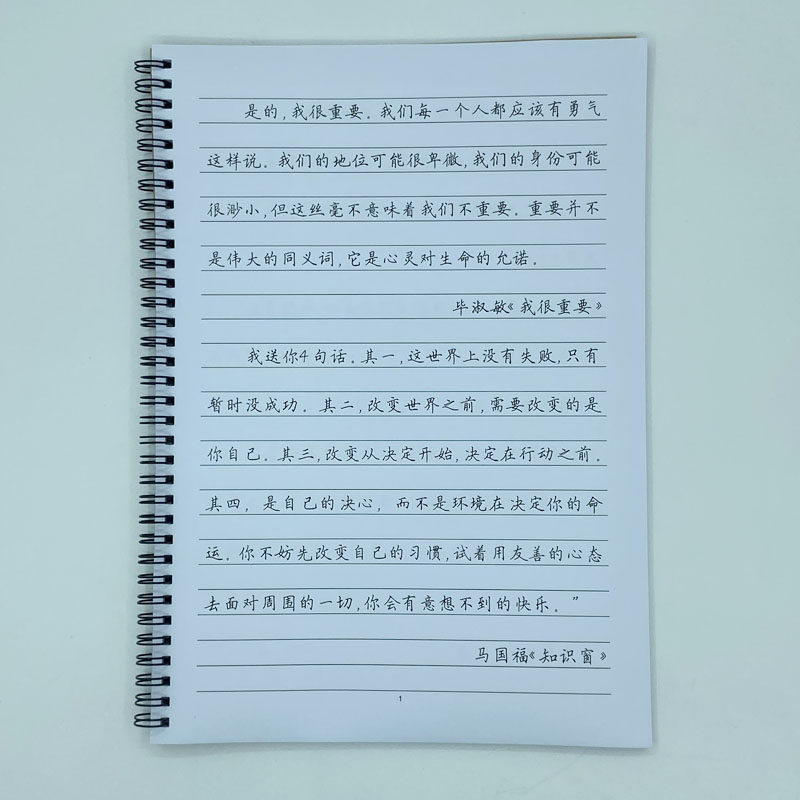 是的,我很重要。我们每一个人都应该有勇气
这样说。我们的地位可能很卑微,我们的身份可能
很渺小,但这丝毫不意味着我们不重要。重要并不
是伟大的同义词,它是心灵对生命的允诺。
毕淑敏《我很重要》
我送你4句话。其一,这世界上没有失败,只有
暂时没成功。其二,改变世界之前,需要改变的是
你自己。其三,改变从决定开始,决定在行动之前。
其四,是自己的决心,而不是环境在决定你的命
运。你不妨先改变自己的习惯,试着用友善的心态
去面对周围的一切,你会有意想不到的快乐。”
马国福《知识窗》
1